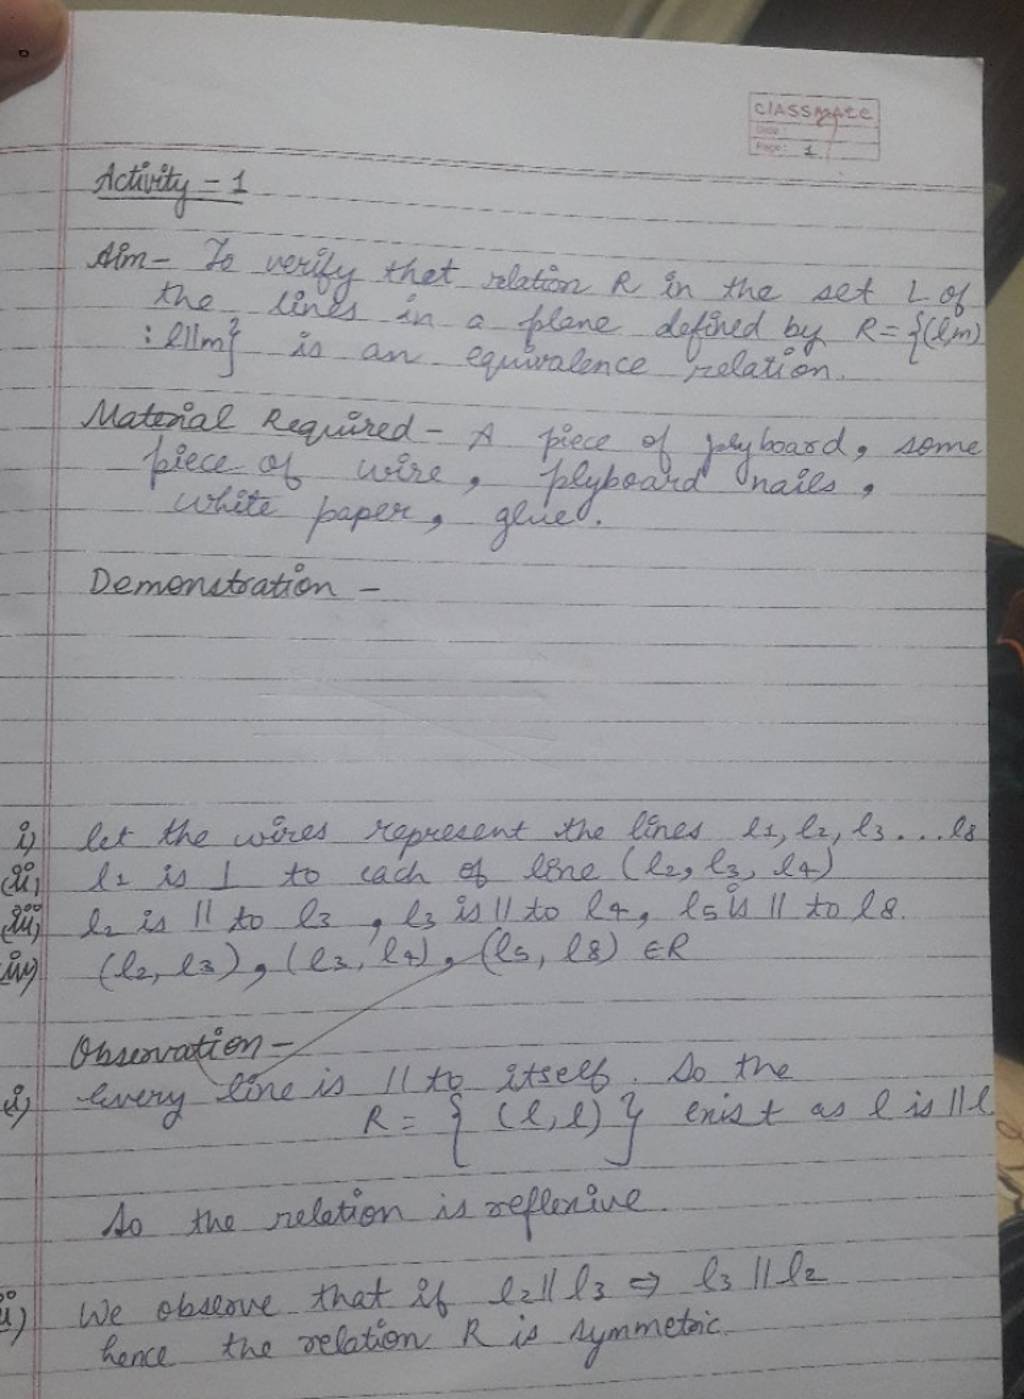 classmate
Date :
Page : 1
Activity - 1
Aim - To verify thet relation R in the set L of
the lines in a plane defined by R = {(l,m)
: l||m} is an equivalence relation.
Material Required - A piece of plyboard, some
piece of wire, plyboard nails,
white paper, glue.
Demonstration -
i) let the wires represent the lines l1, l2, l3 ... l8
(ii) l1 is ⊥ to each of line (l2, l3, l4)
(iii) l2 is || to l3 , l3 is || to l4, l5 is || to l8.
(iv) (l2, l3), (l3, l4), (l5, l8) ∈ R
Observation -
i) Every line is || to itself. So the
R = { (l, l) } exist as l is || l
So the relation is reflexive.
ii) We observe that if l2 || l3 ⇒ l3 || l2
hence the relation R is symmetric.